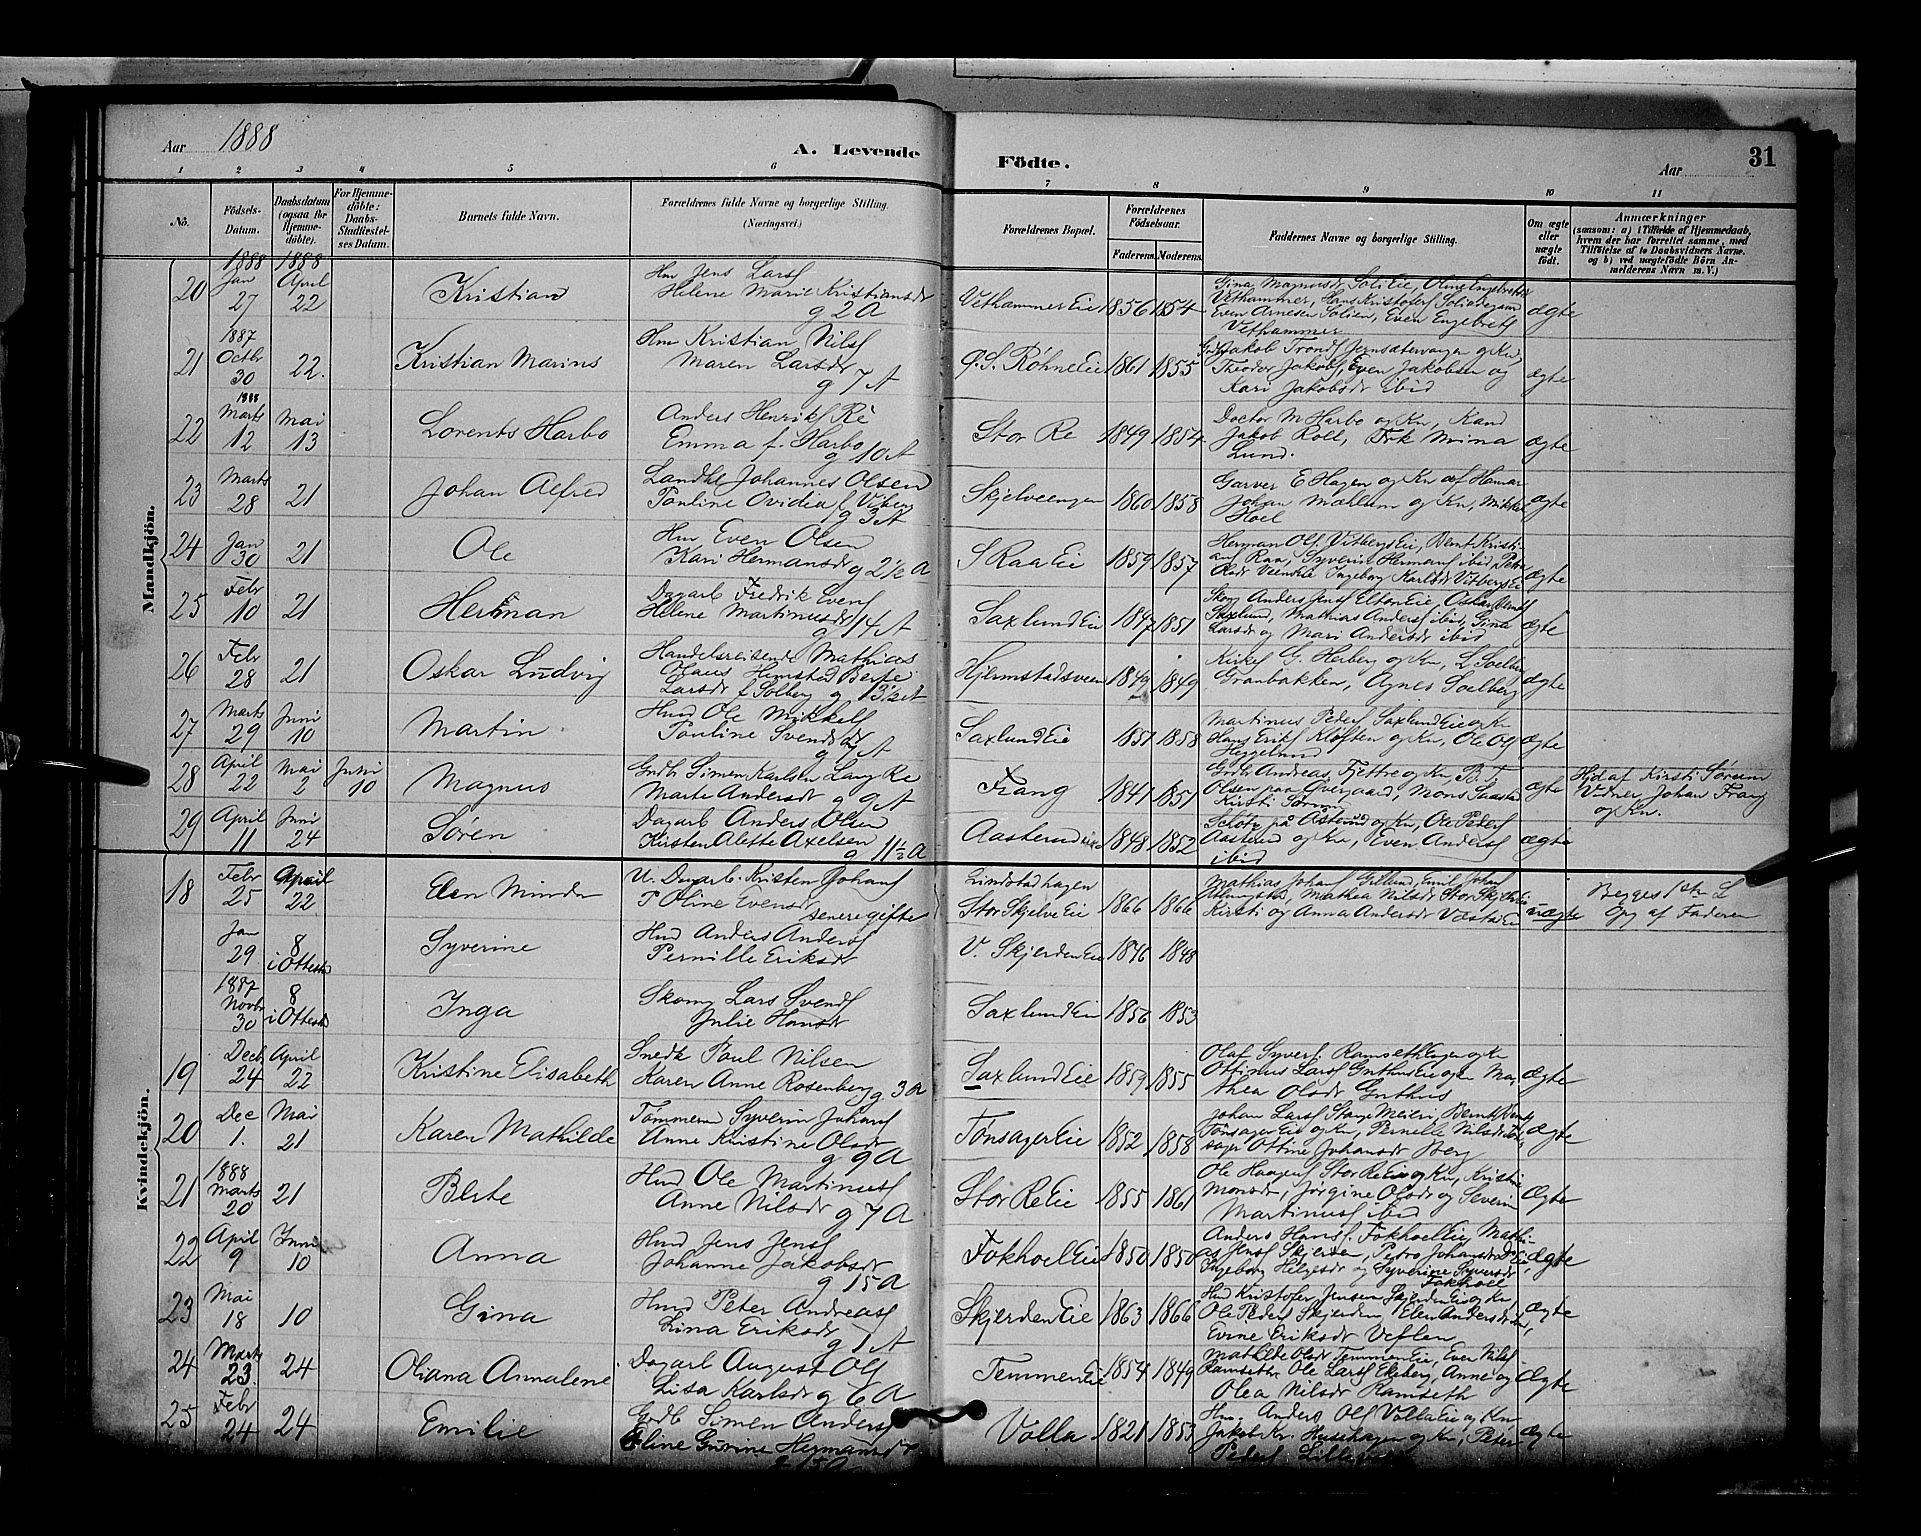 Aar 1888
A. Levende Födte.
Aar
31
1 2 3 4 5 6 7 8 9 10 11
No.
Födsels-Datum.
Daabsdatum (ogsaa for Hjemme-döbte).
For Hjemme-döbte: Daabs-Stadfæstel-ses Datum.
Barnets fulde Navn.
Forældrenes fulde Navne og borgerlige Stilling. (Næringsvei.)
Forældrenes Bopæl.
Forældrenes Födselsaar.
Faderens. Moderens.
Faddernes Navne og borgerlige Stilling.
Om ægte eller uægte födt.
Anmærkninger
(saasom: a) i Tilfælde af Hjemmedaab, hvem der har forrettet samme, med Tilföielse af to Daabsvidners Navne. og b) ved uægtefödte Börn An-melderens Navn m. V.)
Mandkjön.
20 1888 Jan 27 1888 April 22 Kristian Hm Jens Larsf Helene Marie Kristiansdr g 2 A Vethammer Eie 1856 1854 Gina Magnusdr Soli Eie, Oline Engebretsdr Vethammer, Hans Kristofers Even Arnesen Solien, Even Engebrets Vethammer ægte
21 1887 Octbr 30 22. Kristian Marius Hm Kristian Nilsf Maren Larsdr g 7 A Ø. S. Röhne Eie 1861 1855 Jakob Trondf og Kn Theodor Jakobf, Even Jakobsen og Kari Jakobsdr ibid ægte
22 1888 Marts 12 Mai 13 Lorents Harbo Anders Henriks Re Emma f. Harbo g 10 A Stor Re 1849 1854 Doctor M Harbo og Kn, Kand Jakob Roll, Frk Mina Lund. ægte
23 Marts 28 21 Johan Alfred Landhl Johannes Olsen Pauline Ovidia f Viberg g 3 A Skjelveengen 1860 1858 Garver E Hagen og Kn af Hamar Johan Mælum og Kn, Mikkel Hoel ægte
24 Jan 30 21 Ole Hm Even Olsen Kari Hermansdr g 2½ A S Raa Eie 1859 1857 Herman Olf Vitberg Eie, Bernt Kristi- anf Raa, Syverin Hermanf ibid Petra Olsdr Ingeborg Karlsdr Vitberg Eie ægte
25 Febr 10 21 Herman Dagarb Fredrik Evenf Helene Martinusdr g 14 A Saxlund Eie 1847 1851 Skom Anders Jensf Elton Eie, Oskar Berntf Saxlund, Mathias Andersf ibid, Gina Larsdr og Mari Andersdr ibid ægte
26 Febr 28 21 Oskar Ludvig Handelsreisende Mathias Olaus Hemstad Berte Larsdr f Solberg g 13½ A Hjermstadsveen 1849 1849 Kirkes G. Herberg og Kn, L Soelberg Granbakken, Agnes Soelberg ægte
27 Marts 29 Juni 10 Martin Husd Ole Mikkelf Pauline Svendsdr g 7 A Saxlund Eie 1857 1858 Martinus Pedersf Saxlund Eie og Kn Hans Eriks Kloften og Kn, Ole Olf Heggelund ægte
28 April 22 Mai 2 Juni 10 Magnus Grdb Simen Karlsen Lang Re Marte Andersdr g 9 A Frang 1841 1851 Grdb Andreas Fjettre og Kn, B. T. Olsen paa Övergaard, Mons Saastad Kirsti Sörum ægte Hjd af Kirsti Sörum Vidner Johan Frang og Kn.
29 April 11 Juni 24 Sören Dagarb Anders Olsen Kirsten Alette Axelsen g 11½ A Aasterud 1848 1852 på Aasterud og Kn, Ole Pedersf Aasterud og Kn, Even Andersf ibid ægte
Kvindekjön.
18 Febr 25 April 22 Elen Minda U. Dagarb. Kristen Johanf P Oline Evensdr senere gifte Lindstadhagen Stor Skjelve Eie 1866 1866 Mathias Johanf Emil Johanf Mathea Nilsdr Stor Skjelve Eie Kirsti og Anna Andersdr uægte Begges 1ste L Opg af Faderen
Jan 29 8 i Ottestad Syverine Husd Anders Andersf Pernille Eriksdr V. Skjerden Eie 1846 1848
1887 Novbr 30 8 i Ottestad Inga Skomg Lars Svendf Julie Hansdr Saxlund Eie 1856 1853
19 Decb 24 April 22 Kristine Elisabeth Snedk Paul Nilsen Karen Anne Rosenberg g 3 A Saxlund Eie 1859 1855 Olaf Syversf. Ramseth og Kn Ottinus Larsf Guthus Eie og Kn Ma- thea Olsdr Guthus ægte
20 Dec 1. Mai 21 Karen Mathilde Tömmerm Syverin Johanf Anne Kristine Olsdr g 9 A Tönsager Eie 1852 1858 Johan Larsf Stange Meieri, Bernt Berntf Tönsager Eie og Kn, Pernille Nilsdr Tön- sager Ottine Johansdr Berg ægte
21 1888 Marts 20 21 Berte Husd Ole Martinusf Anne Nilsdr g 7 A Stor Re Eie 1855 1861 Ole Haagenf Stor Re Eie og Kn, Kristine Monsdr, Jörgine Olsdr og Severin Martinusf ibid Ægte
22 April 9 Juni 10 Anna Husd Jens Jensf Johanne Jakobsdr g 15 A Fokhoel Eie 1850 1850 Anders Hansf. Fokhoel Eie, Mathi- as Jensf Skjerden, Petra Johansdr Ingeborg Helgesdr og Syverine Syversdr Fokhoel ægte
23 Mai 18 10 Gina Husd Peter Andreasf Lina Eriksdr g 1 A Skjerden Eie 1863 1866 Husd Kristofer Jensen Skjerden Eie og Kn, Ole Pedersf Skjerden, Elen Andersdr ibid, Evine Eriksdr Veflen ægte
24 Marts 23. 24 Oliana Annalene Dagarb August Olf Lisa Karlsdr g 6 A Temmen Eie 1854 1849 Mathilde Olsdr Temmen Eie, Even Nilsf Ramseth Ole Larsf Ekeberg, Anne og Olea Nilsdr Ramseth Ægte
25 Febr 24 24 Emilie Grdb Simen Andersf Eline Gurine Hermansdr g 15 A Volla 1821 1853 Hm. Anders Olf Volla Eie og Kn Jakob Kr. Husehagen og Kn, Peter Pedersf Ægte